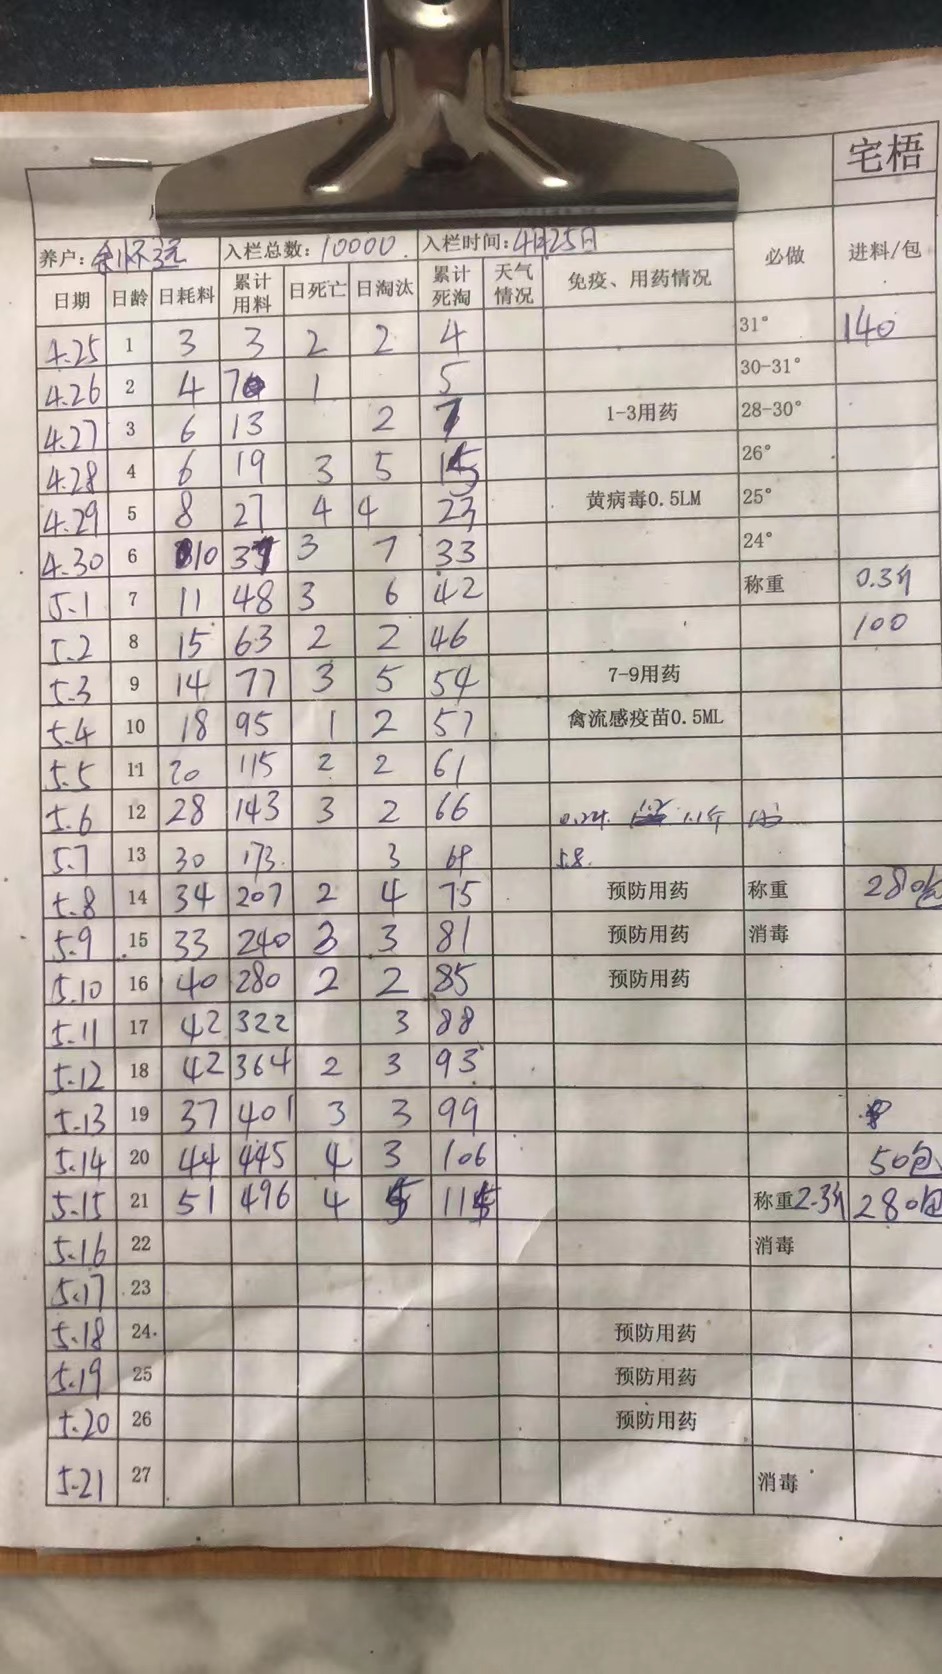 宅梧
养户: 入栏总数:10000 入栏时间:4月25日 必做 进料/包
日期 日龄 日耗料 累计用料 日死亡 日淘汰 累计死淘 天气情况 免疫、用药情况
4.25 1 3 3 2 2 4 31° 140
4.26 2 4 7 1 5 30-31°
4.27 3 6 13 2 7 1-3用药 28-30°
4.28 4 6 19 3 5 15 26°
4.29 5 8 27 4 4 23 黄病毒0.5LM 25°
4.30 6 10 37 3 7 33 24°
5.1 7 11 48 3 6 42 称重 0.3斤
5.2 8 15 63 2 2 46 100
5.3 9 14 77 3 5 54 7-9用药
5.4 10 18 95 1 2 57 禽流感疫苗0.5ML
5.5 11 20 115 2 2 61
5.6 12 28 143 3 2 66 1.1斤
5.7 13 30 173 3 69 5.8.
5.8 14 34 207 2 4 75 预防用药 称重 280包
5.9 15 33 240 3 3 81 预防用药 消毒
5.10 16 40 280 2 2 85 预防用药
5.11 17 42 322 3 88
5.12 18 42 364 2 3 93
5.13 19 37 401 3 3 99
5.14 20 44 445 4 3 106 50包
5.15 21 51 496 4 5 115 称重2.3斤 280包
5.16 22 消毒
5.17 23
5.18 24 预防用药
5.19 25 预防用药
5.20 26 预防用药
5.21 27 消毒